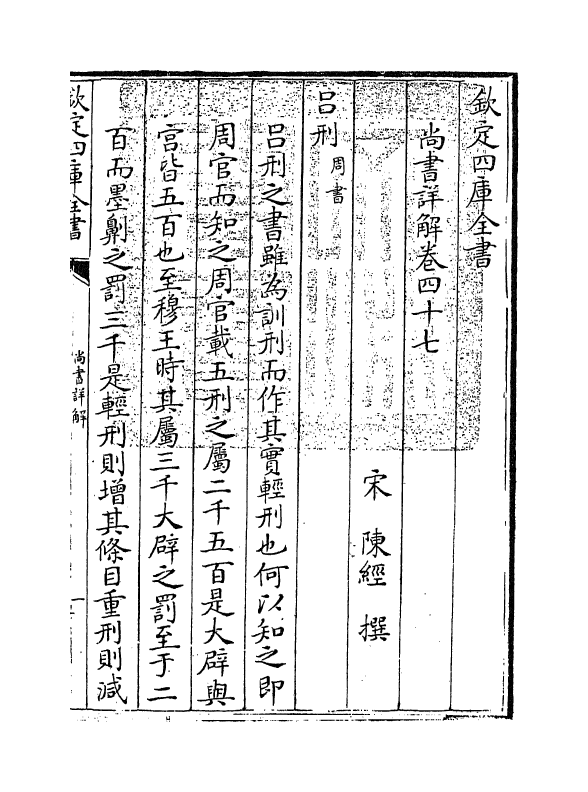 欽定四庫全書
尚書詳解卷四十七
宋 陳經 撰
呂刑 周書
呂刑之書雖為訓刑而作其實輕刑也何以知之即
周官而知之周官載五刑之屬二千五百是大辟與
宮皆五百也至穆王時其屬三千大辟之罰至于二
百而墨劓之罰三千是輕刑則增其條目重刑則減
欽定四庫全書
尚書詳解